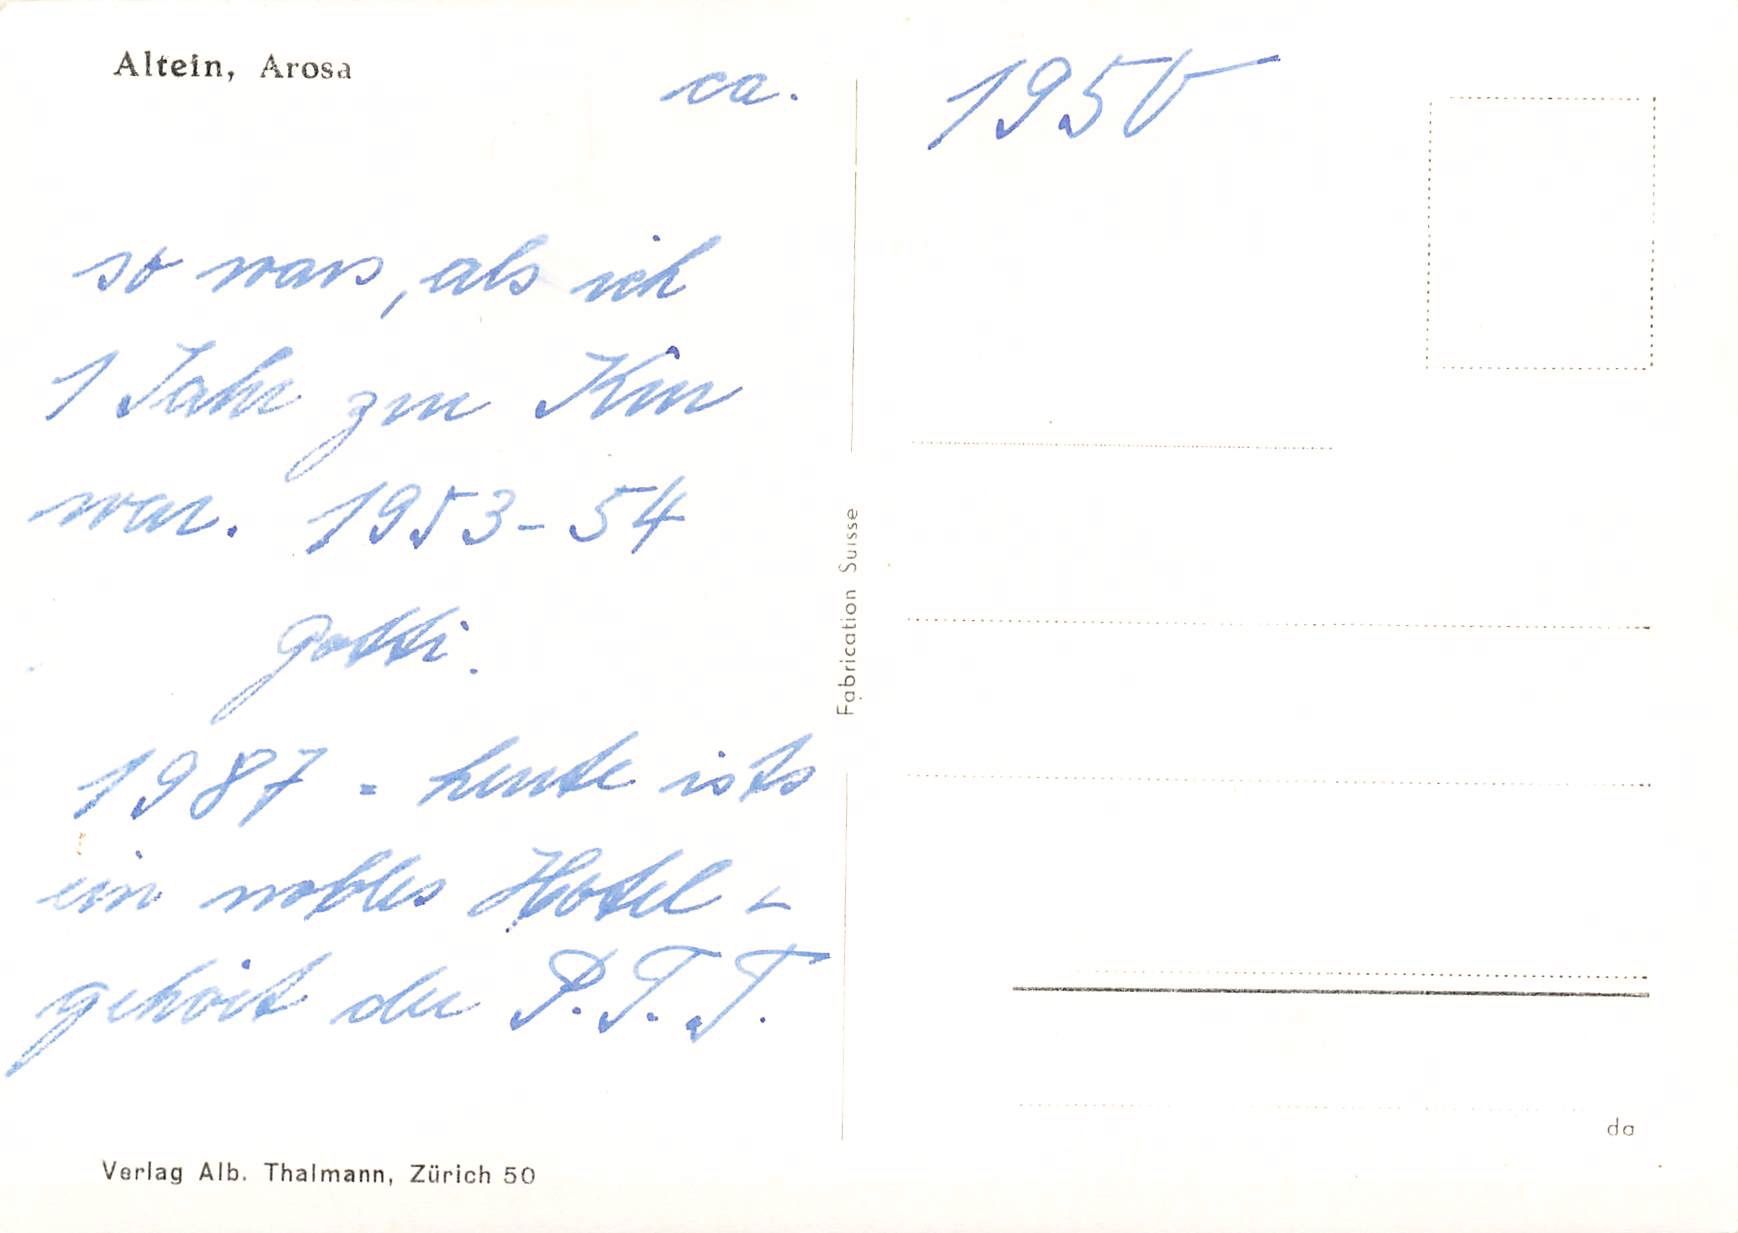 Altein, Arosa
ca. 1950
so wars, als ich
1 Jahr zur Kur
war. 1953-54
Gotti.
1987 = heute ists
ein nobles Hotel -
gehört der P.T.T.
Fabrication Suisse
da
Verlag Alb. Thalmann, Zürich 50